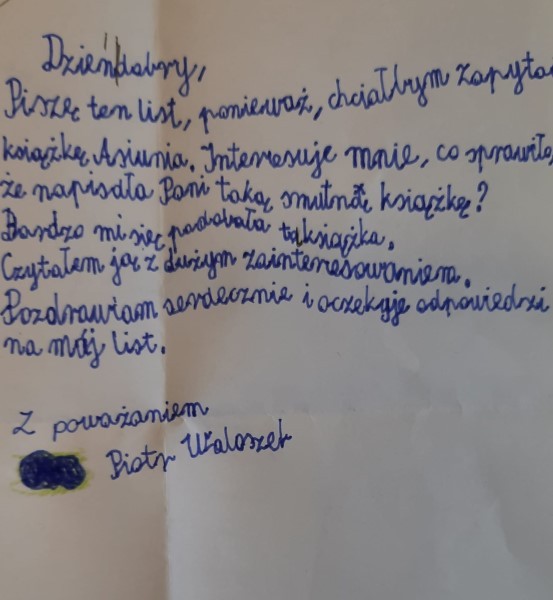 Dzieńdobry,
Piszę ten list, ponieważ, chciałbym zapyta
książkę Asiunia. Interesuje mnie, co sprawiło,
że napisała Pani taką smutną książkę?
Bardzo mi się podobała ta książka.
Czytałem ją z dużym zainteresowaniem.
Pozdrawiam serdecznie i oczekuję odpowiedzi
na mój list.
Z poważaniem
Piotr Waloszek